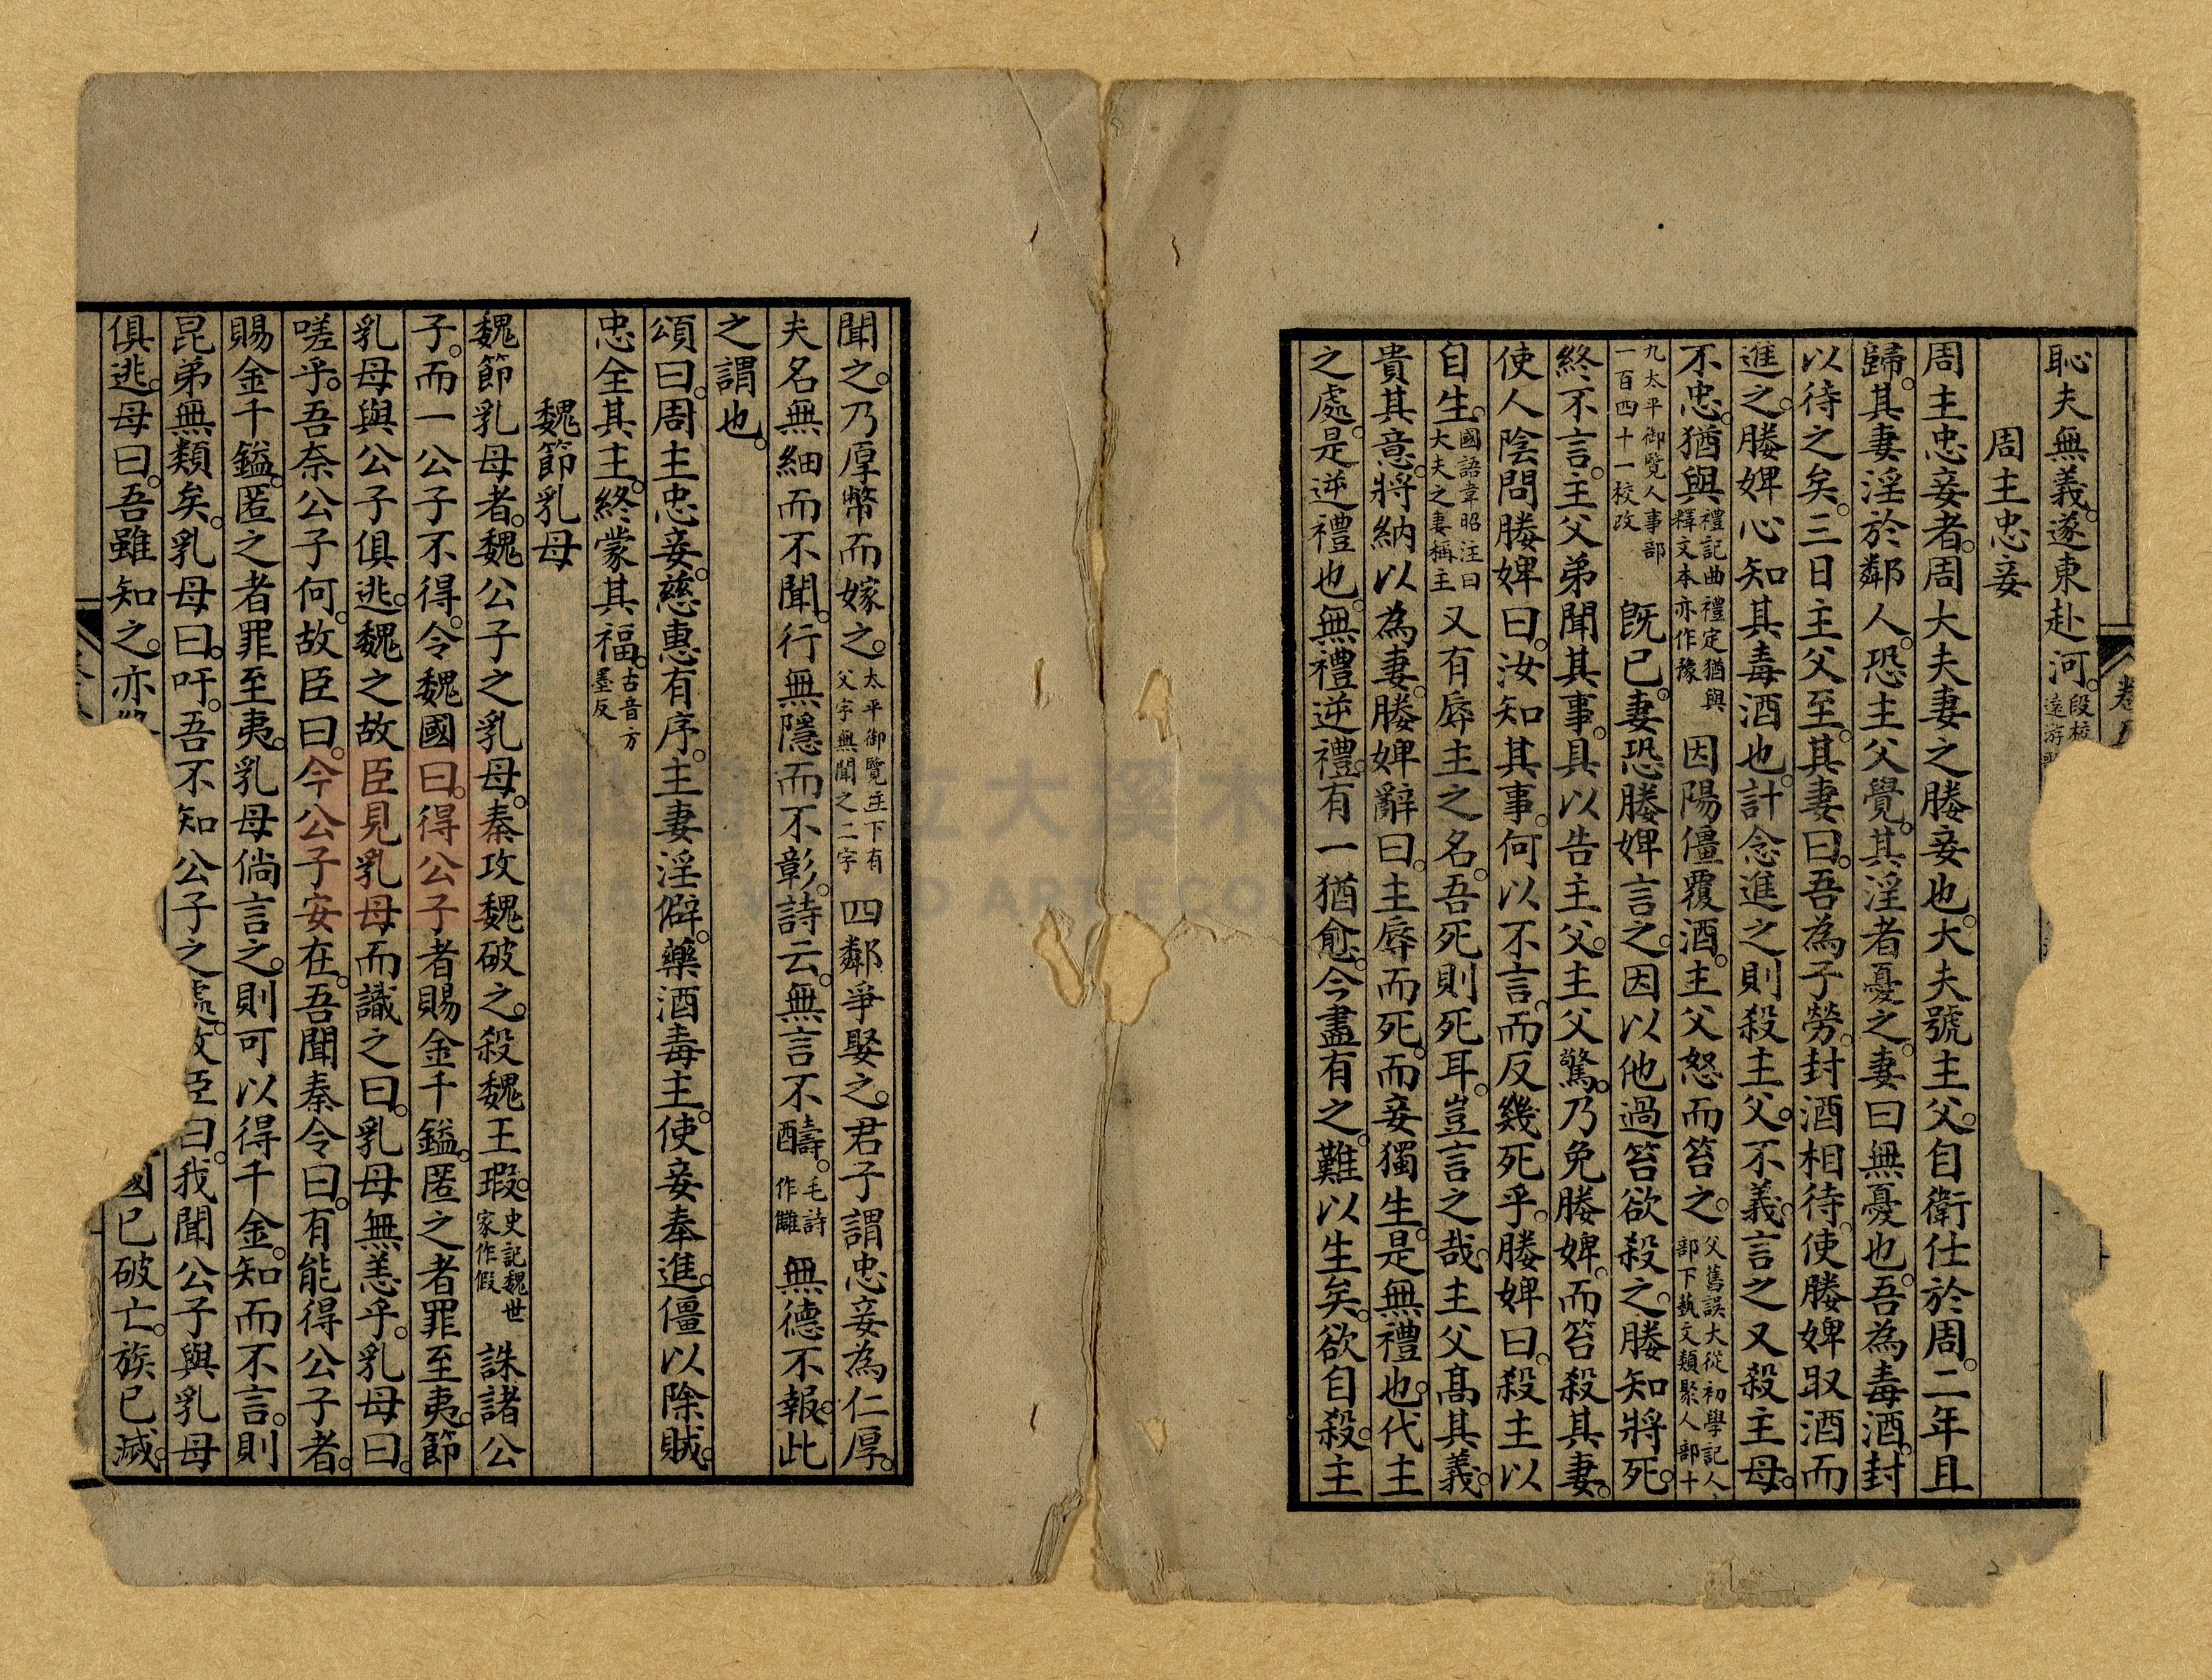 卷五
恥夫無義。遂東赴河。段校遠游
周主忠妾
周主忠妾者。周大夫妻之媵妾也。大夫號主父。自衛仕於周。二年且
歸。其妻淫於鄰人。恐主父覺。其淫者憂之。妻曰無憂也。吾為毒酒。封
以待之矣。三日主父至。其妻曰。吾為子勞。封酒相待。使媵婢取酒而
進之。媵婢心知其毒酒也。計念進之則殺主父。不義。言之又殺主母。
不忠。猶與禮記曲禮定猶與釋文本亦作豫因陽僵覆酒。主父怒而笞之。父舊誤大從初學記人部下藝文類聚人部十
九太平御覽人事部一百四十一校改既已。妻恐媵婢言之。因以他過笞欲殺之。媵知將死。
終不言。主父弟聞其事。具以告主父。主父驚。乃免媵婢。而笞殺其妻。
使人陰問媵婢曰。汝知其事。何以不言。而反幾死乎。媵婢曰。殺主以
自生。國語韋昭注曰大夫之妻稱主又有辱主之名。吾死則死耳。豈言之哉。主父高其義。
貴其意。將納以為妻。媵婢辭曰。主辱而死。而妾獨生。是無禮也。代主
之處。是逆禮也。無禮逆禮。有一猶愈。今盡有之。難以生矣。欲自殺。主
聞之。乃厚幣而嫁之。太平御覽主下有父字無聞之二字四鄰爭娶之。君子謂忠妾為仁厚。
夫名無細而不聞。行無隱而不彰。詩云。無言不醻。毛詩作讎無德不報。此
之謂也。
頌曰。周主忠妾。慈惠有序。主妻淫僻。藥酒毒主。使妾奉進。僵以除賊。
忠全其主。終蒙其福。古音方墨反
魏節乳母
魏節乳母者。魏公子之乳母。秦攻魏破之。殺魏王瑕。史記魏世家作假誅諸公
子。而一公子不得。令魏國曰。得公子者賜金千鎰。匿之者罪至夷。節
乳母與公子俱逃。魏之故臣見乳母而識之曰。乳母無恙乎。乳母曰。
嗟乎。吾奈公子何。故臣曰。今公子安在。吾聞秦令曰。有能得公子者。
賜金千鎰。匿之者罪至夷。乳母倘言之。則可以得千金。知而不言。則
昆弟無類矣。乳母曰。吁。吾不知公子之處。故臣曰。我聞公子與乳母
俱逃。母曰。吾雖知之。亦國已破亡。族已滅。
大溪木
WOOD ART ECO